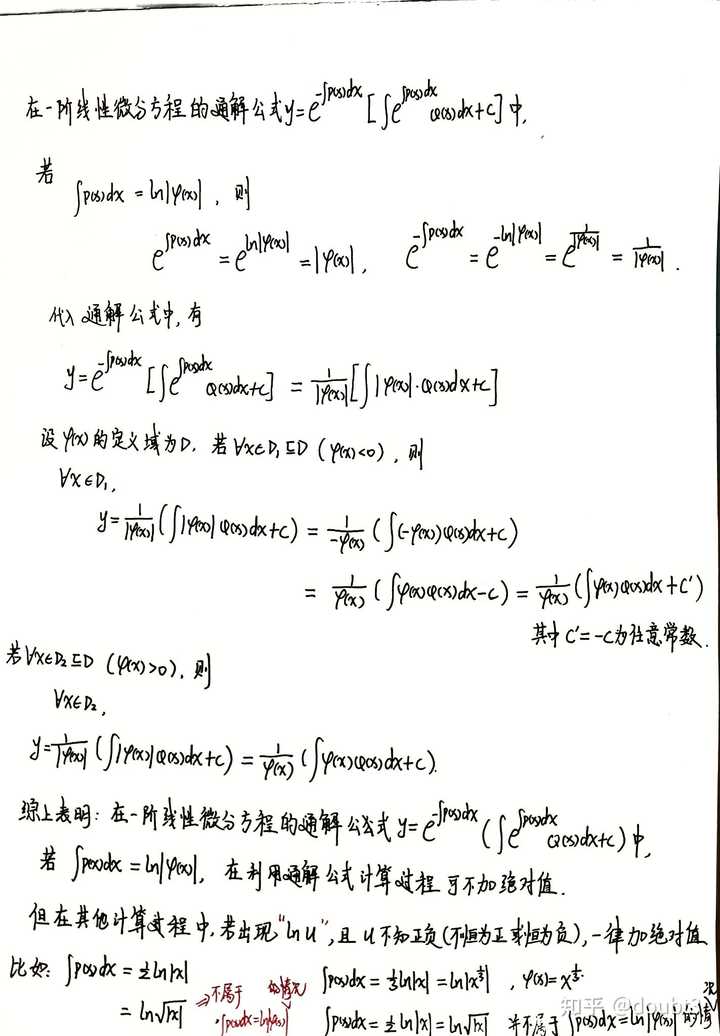 在一阶线性微分方程的通解公式y=e^{-∫p(x)dx}[∫e^{∫p(x)dx}Q(x)dx+C]中,
若
∫p(x)dx = ln|φ(x)|, 则
e^{∫p(x)dx} = e^{ln|φ(x)|} = |φ(x)|, e^{-∫p(x)dx} = e^{-ln|φ(x)|} = e^{\frac{1}{|φ(x)|}} = \frac{1}{|φ(x)|}.
代入通解公式中,有
y=e^{-∫p(x)dx}[∫e^{∫p(x)dx}Q(x)dx+C] = \frac{1}{|φ(x)|}[∫|φ(x)|·Q(x)dx+C]
设φ(x)的定义域为D. 若∀x∈D₁⊆D (φ(x)<0), 则
∀x∈D₁,
y=\frac{1}{|φ(x)|}(∫|φ(x)|Q(x)dx+C) = \frac{1}{-φ(x)}(∫(-φ(x))Q(x)dx+C)
= \frac{1}{φ(x)}(∫φ(x)Q(x)dx-C) = \frac{1}{φ(x)}(∫φ(x)Q(x)dx+C')
其中C'=-C为任意常数.
若∀x∈D₂⊆D (φ(x)>0), 则
∀x∈D₂,
y=\frac{1}{|φ(x)|}(∫|φ(x)|Q(x)dx+C) = \frac{1}{φ(x)}(∫φ(x)Q(x)dx+C).
综上表明: 在一阶线性微分方程的通解公式y=e^{-∫p(x)dx}(∫e^{∫p(x)dx}Q(x)dx+C)中,
若 ∫p(x)dx=ln|φ(x)|, 在利用通解公式计算过程可不加绝对值.
但在其他计算过程中,若出现"ln u",且u不知正负(不恒为正或恒为负),一律加绝对值
比如: ∫p(x)dx = ½ln|x|
= ln√|x| ⇒不属于 的情况
∫p(x)dx=ln|φ(x)|
∫p(x)dx = ⅓ln|x| = ln|x^{⅓}|, φ(x)=x^{⅓}.
∫p(x)dx = ½ln|x| = ln√|x| 并不属于∫p(x)dx=ln|φ(x)|的情况
知乎 @doubt3